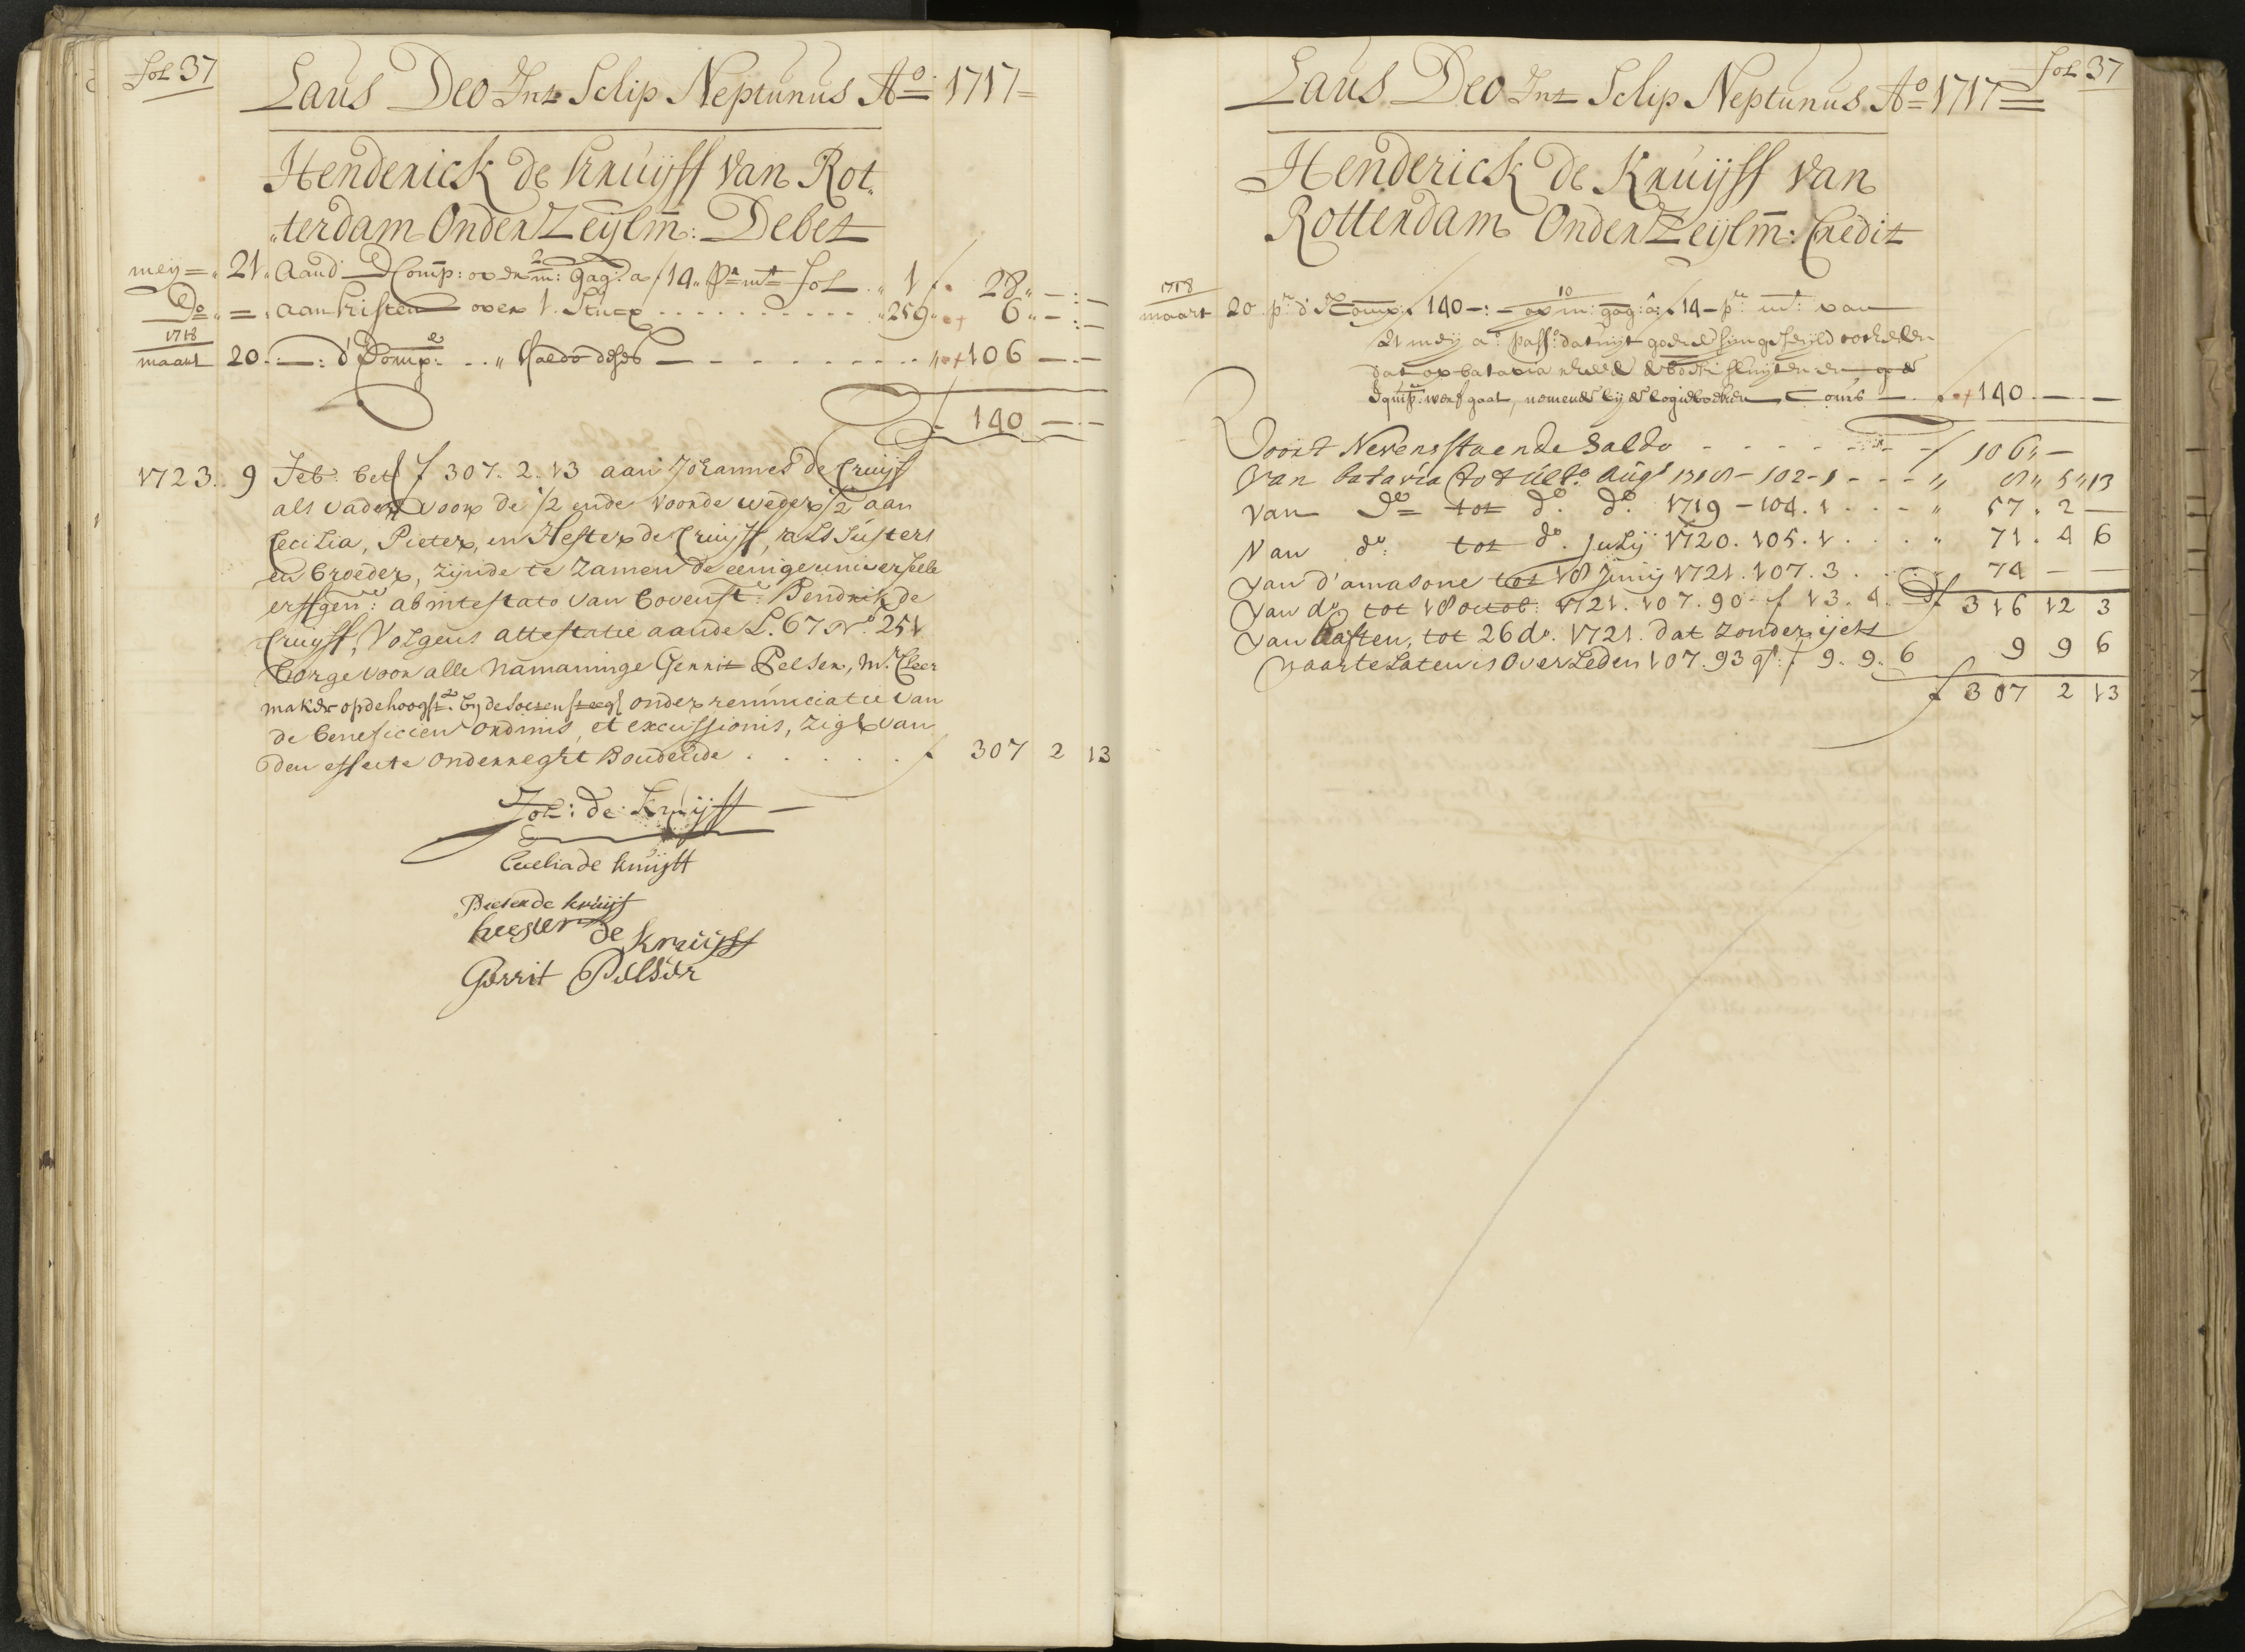 fol 37
Laus Deo Int Schip Neptunus Aº 1717
Henderick de Kruijff van Rot„
„terdam Onder Zeijlm̄: Debet
meij 21 aan d'E Comp: over 2 m: gag: a f 14 „ pr mt fol „ 1 f 28 „ —
Dº „ aan kisten over 1. Stucx „ 259 „ 6 „ —
1718
maart 20 d'E Comp: „ Saldo deses 106 —
f 140 —
1723. 9 Feb. bet f 307. 2. 13 aan Johannes de Cruijf
als vader voor de 1/2 ende voorde weder 1/2 aan
Cecilia, Pieter, en Hester de Cruijff, als Susters
en broeder, zijnde te zamen de eenige universeele
erffgen: ab intestato van bovenst: Hendrik de
Cruijff, Volgens attestatie aande L. 67 Nº 251
borge voor alle namaninge Gerrit Pelser, Mr. Cleer
maker opde hoogst. bij de soetensteegh onder renunciatie van
de beneficien ordinis, et excussionis, zigh van
den effecte onderreght houdende f 307 2 13
Joh: de Kruijff
Cecilia de kruijff
Pieter de kruijf
heester de kruijff
Gerrit Pelser
fol 37
Laus Deo Int Schip Neptunus Aº 1717
Henderick de Kruijff van
Rotterdam Onder Zeijlm̄: Credit
1718
maart 20 pr d'E Comp: f 140 — over 10 m: gag: a f 14 — pr mt: van
21 meij aº pass: dat uijt
dat op batavia
Equip: werf gaat, f 140 — —
Voort Nevensstaende Saldo f 106 „ —
Van batavia tot ultº augs 1718 - 102 - 1 „ 8 „ 5 „ 13
van Dº tot dº. dº. 1719 - 104. 1 „ 57. 2 —
Van dº. tot dº. Julij 1720. 105. 1 „ 71. 4 6
van d'amasone tot 18 Junij 1721. 107. 3 „ 74 — —
van dº tot 18 octob: 1721. 107. 90 - f 13. 4. f 316 12 3
van Casten, tot 26 dº. 1721. dat zonder ijets
naar te laten is overleden 107. 93 f 9. 9. 6 9 9 6
f 307 2 13